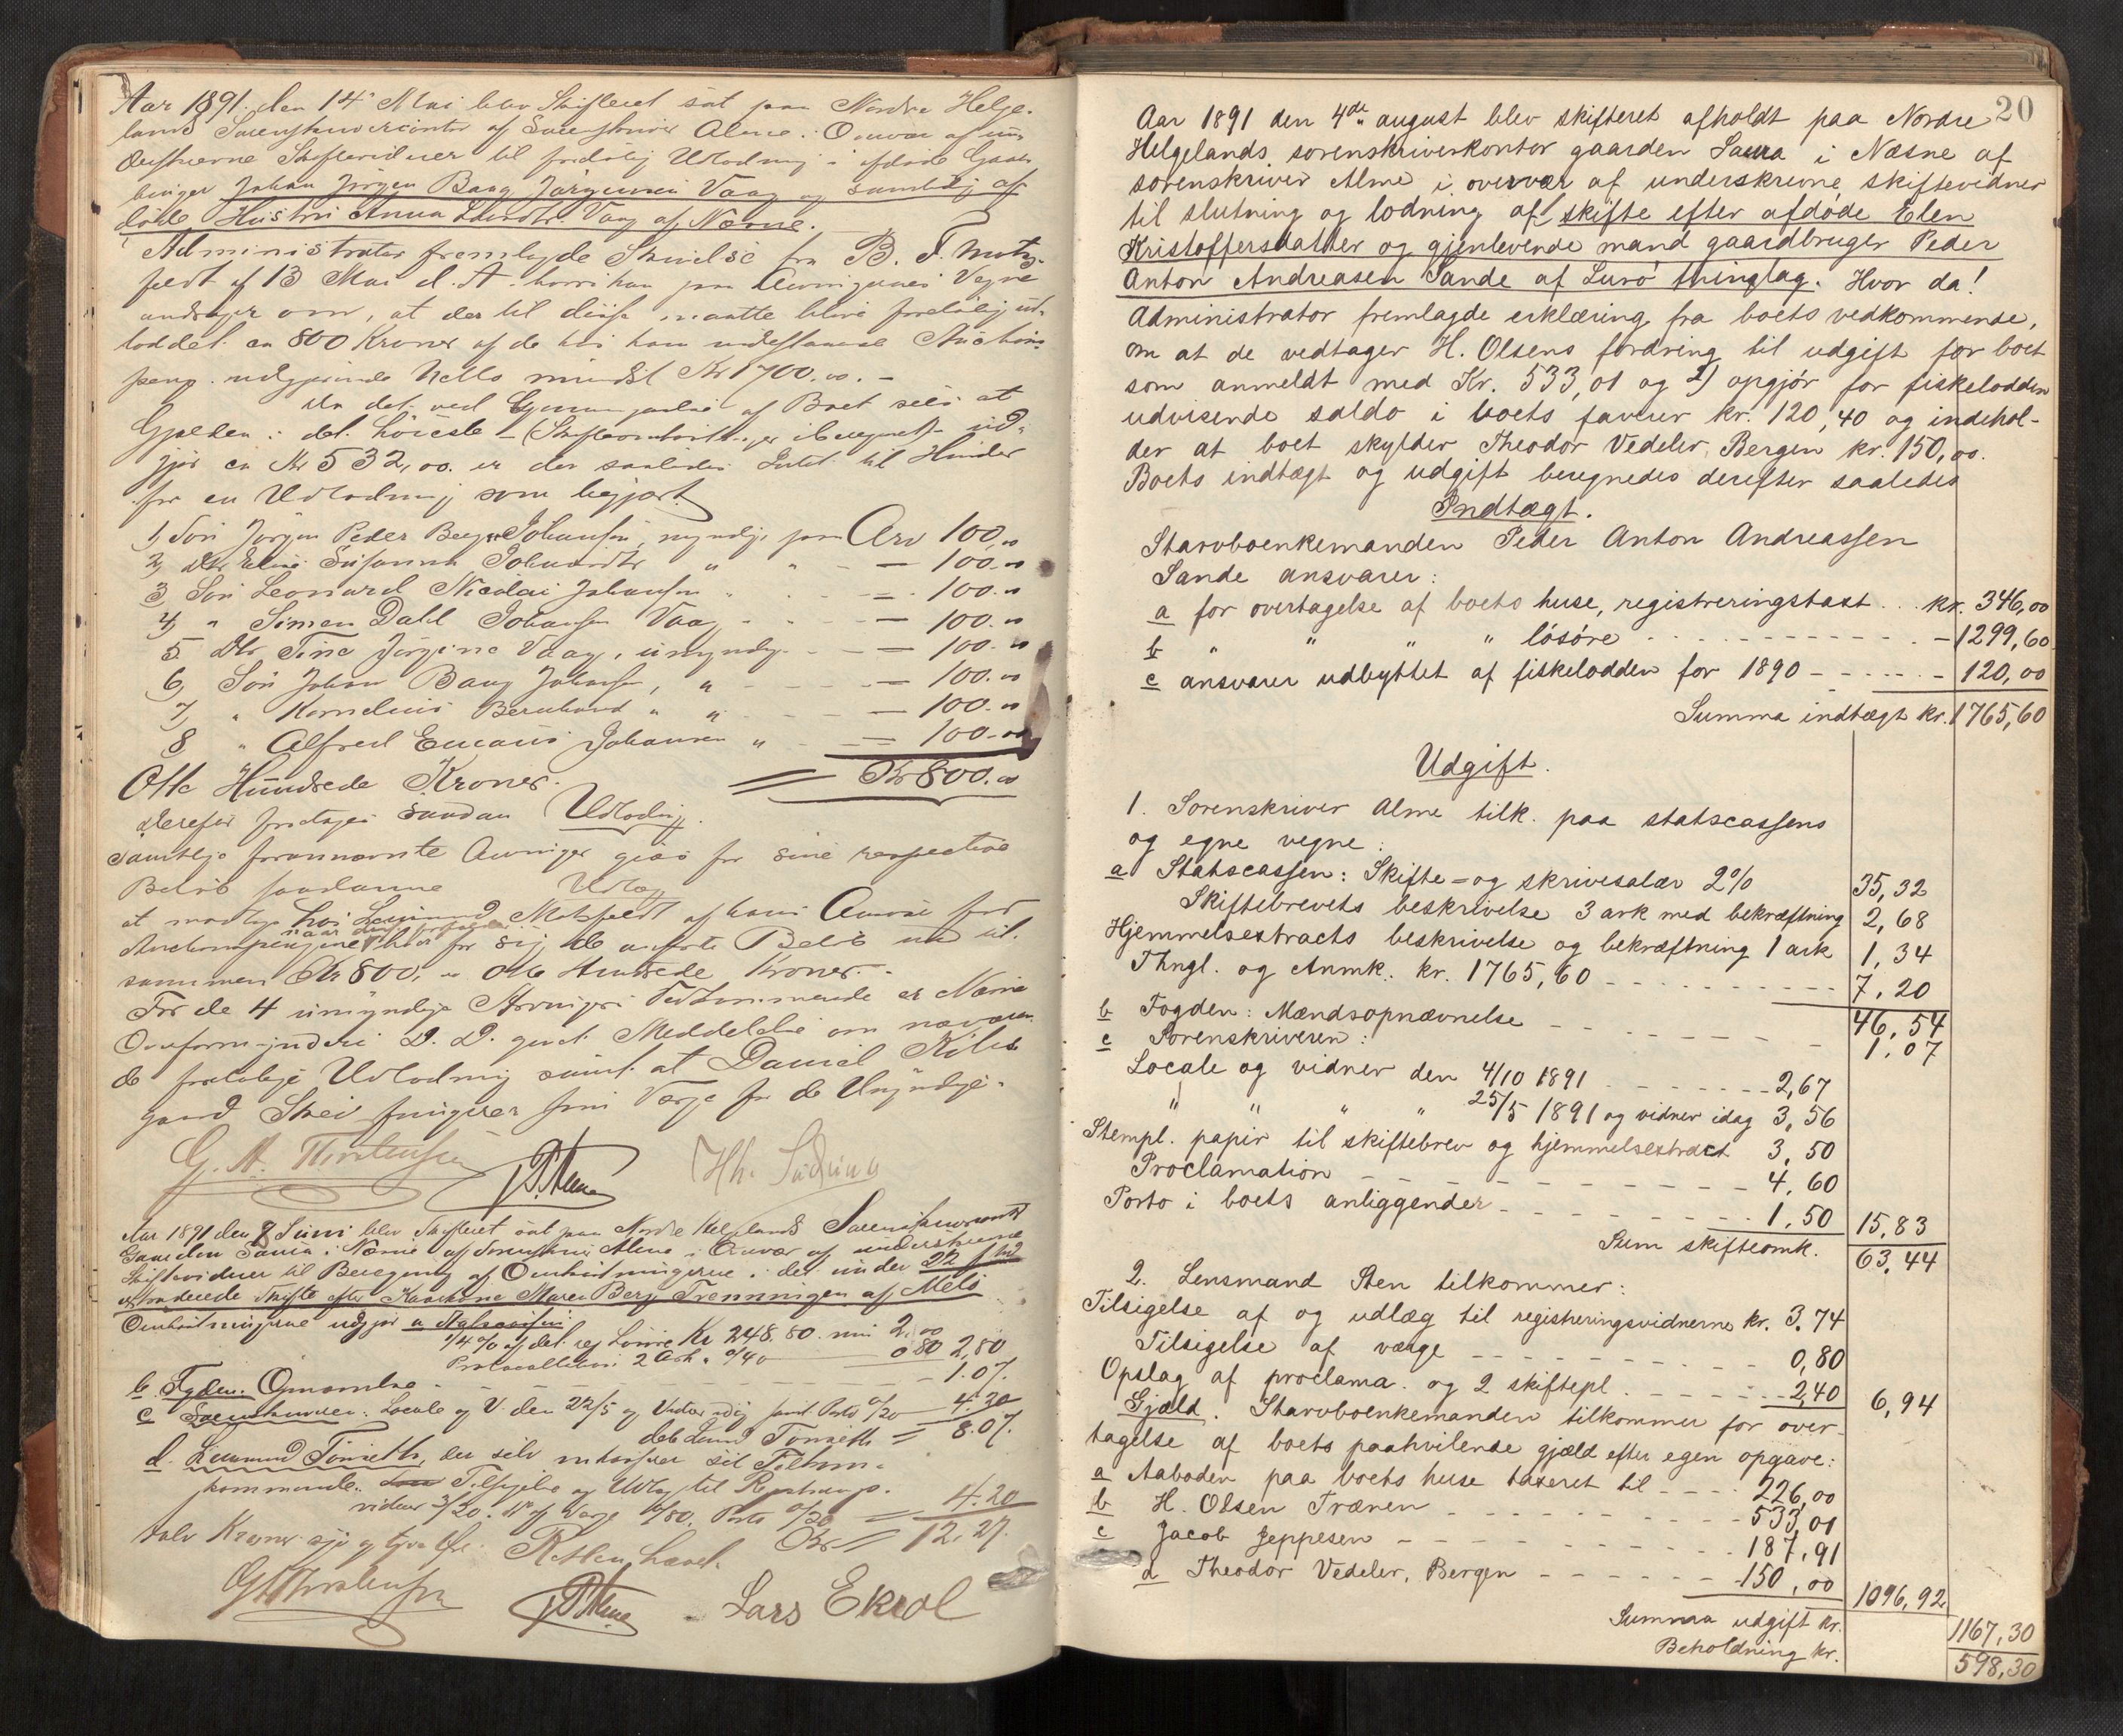 Aar 1891 den 14' Mai blev Skifteret sat paa Nordre Helge-
lands Sorenskrivercontor af Sorenskriver Alme i Overvær af un-
derskrevne Skiftevidner til foreløbig Udlodning i afdøde Gaar
bruger Johan Jörgen Baag Jörgensen Vaag og samtidig af
døde Hustru Anna Vaag af Næsne.
Administrator fremlagde Skrivelse fra B. F. Motz-
feldt af 13 Mai d. A. hvori han paa Arvingernes Vegne
andrager om, at der til disse maatte blive foreløbig ud-
loddet ca 800 Kroner af de hos ham indestaaende Auctions
peng. udgjørende Netto mindst Kr 1700.00. -
Da det ved af Boet sees at
Gjælden i det høieste - (Skifteomkostninger iberegnet) - ud-
gjør ca Kr 532,00. er der saaledes Intet til Hinder
for en Udlodning som begjært
1) Søn Jørgen Peder Johansen, myndig paa Arv 100,00
2) Dtr. Eline Susanna Johansdtr " " - 100.00
3 Søn Leonard Nicolai Johansen " - 100.00
4) " Simen Dahl Johansen Vaag - - 100.00
5. Dtr. Tine Jørgine Vaag, umyndig - - 100.00
6, Søn Johan Baag Johansen, " - 100.00
7) " Kornelius Bernhard " " - 100.00
8 " Alfred Johansen " - 100.00
Otte Hundrede Kroner. Kr 800.00
Derefter foretages saadan Udlodning.
Samtlige forannævnte Arvinger gives for sine respective
Beløb saadanne Udlæg
at modtage hos Lensmand Motzfeldt af hans Ansvar for
Auctionspengene hver for sig de anførte Beløb ud til-
sammen Kr 800, " Otte Hundrede Kroner. -
For de 4 umyndige Arvingers Vedkommende er Næsne
Overformynderi D. D. givet Meddelelse om nærværen
de foreløbige Udlodning samt at Daniel
gaard fungerer som Værge for de Umyndige.
G. A. Thorstensen
Aar 1891 den 8 Juni blev Skifteret sat paa Nordre Helgelands Sorenskrivercont
Gaarden Saura i Næsne af Sorenskriver Alme i Overvær af underskrevne
Skiftevidner til Beregning af Omkostningerne i det under 22 f. Md
sluttede Skifte efter Maren Berg af Melø
Omkostningerne udgjør a Statscassen:
1/4 % af det reg Løsøre Kr 248.80. min 2,00
Protocollation 2 Ark a 0/40 0 80 2,80
b. Fogden: Opnævnelse - - 1.07.
c Sorenskriveren: Locale og V. den 22/5 og Vidner idag samt Porto 0/20 4.20
8.07.
d. Lensmand Tonseth, der selv indkræver sit Tilkom-
kommende. Tilsigelse og Udlæg til Registrerings.
vidner 3/20. af Værge 0/80. Porto 0/20 4.20
tolv Kroner syv og tyve Øre. Kr 12.27.
G A Thorstensen Lars Ekrol
20
Aar 1891 den 4de august blev skifteret afholdt paa Nordre
Helgelands sorenskriverkontor gaarden Saura i Næsne af
sorenskriver Alme i overvær af underskrevne skiftevidner
til slutning og lodning af skifte efter afdøde Elen
Kristoffersdatter og gjenlevende mand gaardbruger Peder
Anton Andreasen Sande af Lurø thinglag. Hvor da!
Administrator fremlagde erklæring fra boets vedkommende,
om at de vedtager H. Olsens fordring til udgift for boet
som anmeldt med Kr. 533,01 og 2) opgjør for fiskelodden
udvisende saldo i boets faveur kr. 120,40 og indehol-
der at boet skylder Theodor Vedeler, Bergen kr. 150,00.
Boets indtægt og udgift beregnedes derefter saaledes
Indtægt.
Starvboenkemanden Peder Anton Andreassen
Sande ansvarer:
a for overtagelse af boets huse, registreringstaxt . . . kr. 346,00
b " " " løsøre - 1299,60
c ansvarer udbyttet af fiskelodden for 1890 - - - - - 120,00
Summa indtægt kr. 1765,60
Udgift.
1. Sorenskriver Alme tilk. paa statscassens
og egne vegne:
a Statscassen: Skifte= og skrivesalær 2% 35,32
Skiftebrevets beskrivelse 3 ark med bekræftning 2,68
Hjemmelsextracts beskrivelse og bekræftning 1 ark 1,34
Thngl. og Anmk. kr. 1765,60 - - - - - 7,20
46,54
b Fogden: Mændsopnævnelse - - - - - 1,07
c Sorenskriveren:
Locale og vidner den 4/10 1891 - - - - - 2,67
" " " " 25/5 1891 og vidner idag 3,56
Stempl. papir til skiftebrev og hjemmelsextract 3,50
Proclamation - - - - - 4,60
Porto i boets anliggender - - - - - 1,50 15,83
Sum skifteomk. 63,44
2. Lensmand Sten tilkommer:
Tilsigelse af og udlæg til registreringsvidnerne kr. 3,74
Tilsigelse af værge - - - - - 0,80
Opslag af proclama. og 2 skiftepl. - - - - - 2,40 6,94
Gjæld. Starvboenkemanden tilkommer for over-
tagelse af boets paahvilende gjæld efter egen opgave:
a Aaboden paa boets huse taxeret til - - - - 226,00
b H. Olsen Trænen - - - - - 533,01
c Jacob Jeppesen - - - - - 187,91
d Theodor Vedeler, Bergen - - - - - 150,00 1096,92
Summa udgift kr. 1167,30
Beholdning kr. 598,30